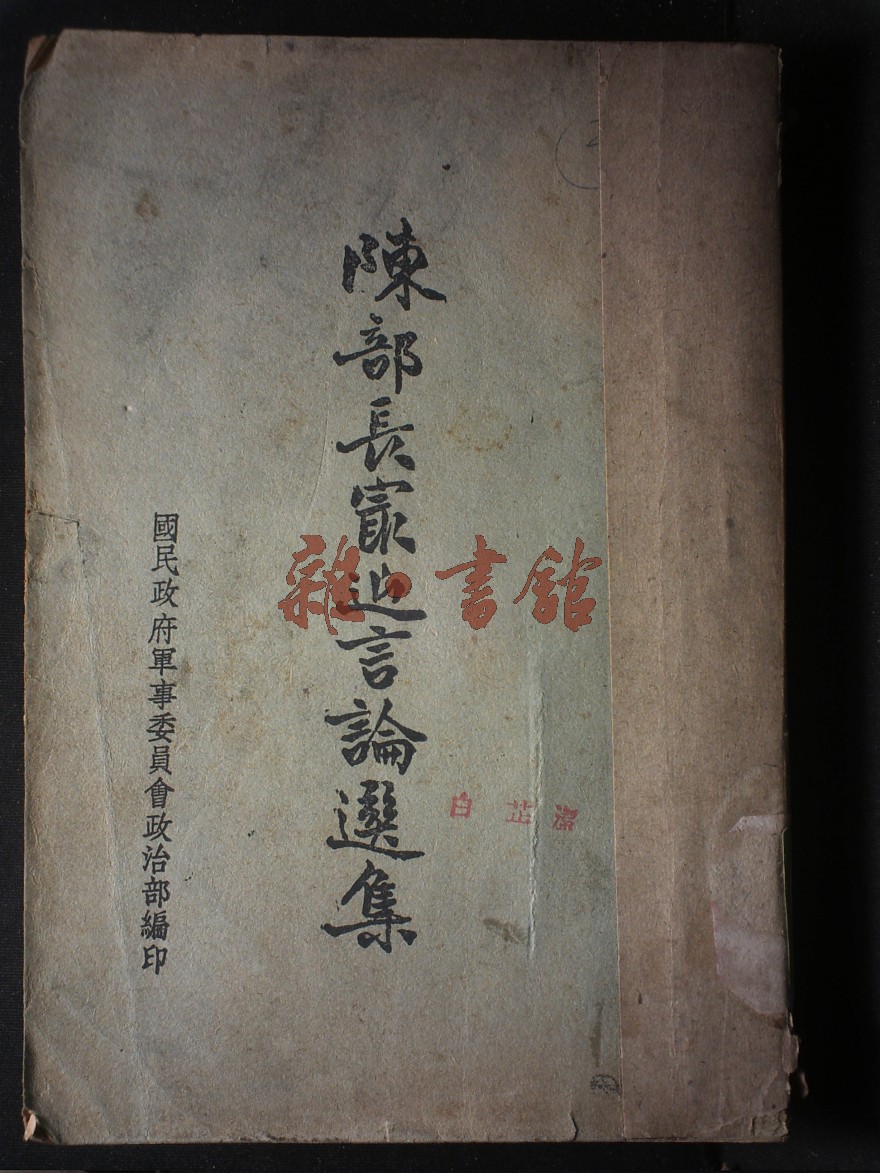 陳部長㝡近言論選集
國民政府軍事委員會政治部編印
雜·書館
白芷潔